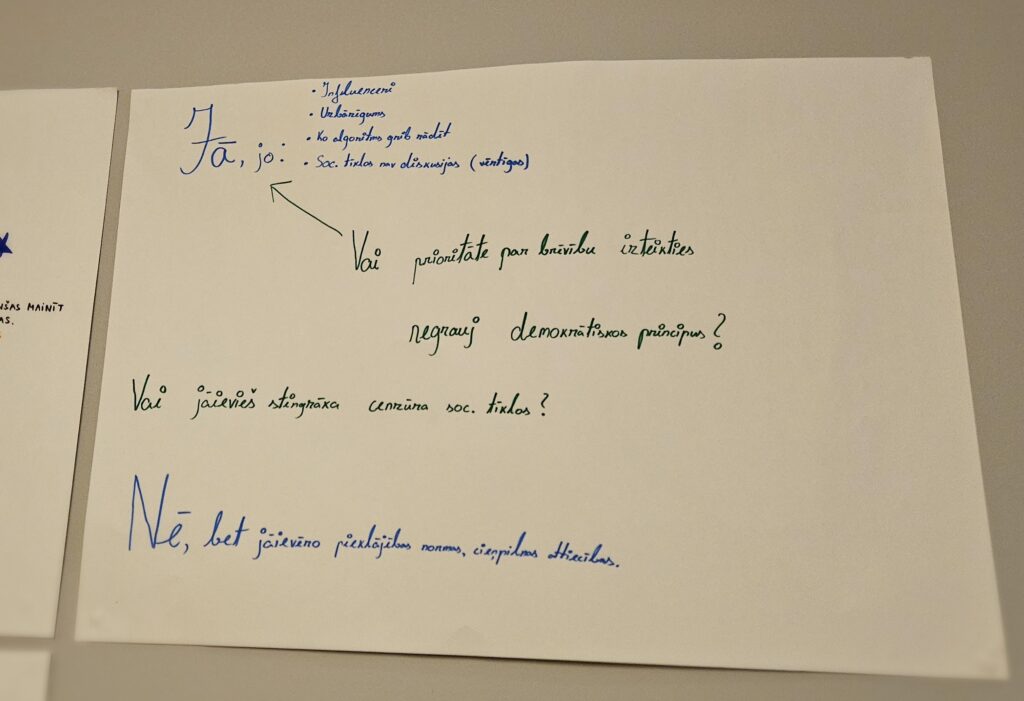 Jā, jo:
• Influenceri
• Uzbāzīgums
• Ko algoritms grib rādīt
• Soc. tīklos nav diskusijas (vērtīgas)
Vai prioritāte par brīvību izteikties
negrauj demokrātiskos principus?
Vai jāievieš stingrāka cenzūra soc. tīklos?
Nē, bet jāievēro pieklājības normas, cieņpilnas attiecības.
MAINĪT